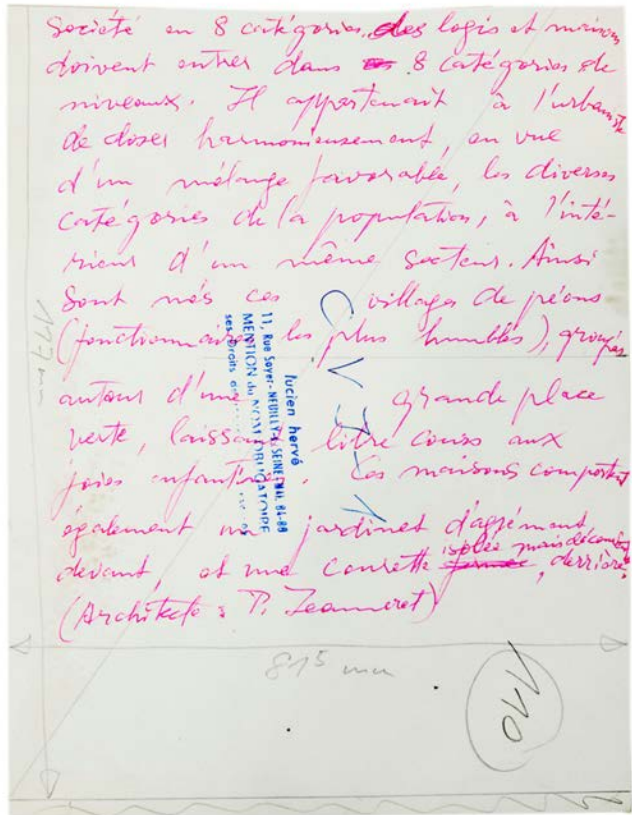 Société en 8 catégories, des logis et maisons
doivent entrer dans 8 catégories de
niveaux. Il appartenait à l'urbaniste
de doser harmonieusement, en vue
d'un mélange favorable, les diverses
catégories de la population, à l'inté-
rieur d'un même secteur. Ainsi
sont nés ces villages de péons
(fonctionnaires les plus humbles), groupés
autour d'une grande place
verte, laissant libre cours aux
joies enfantines. Ces maisons comportent
également un jardinet d'agrément
devant, et une courette isolée mais découverte, derrière.
(Architecte : P. Jeanneret)
lucien hervé
11, Rue Soyer - NEUILLY s/ SEINE
MENTION du NOM OBLIGATOIRE
ses Droits
C V
177 mm
815 mm
110